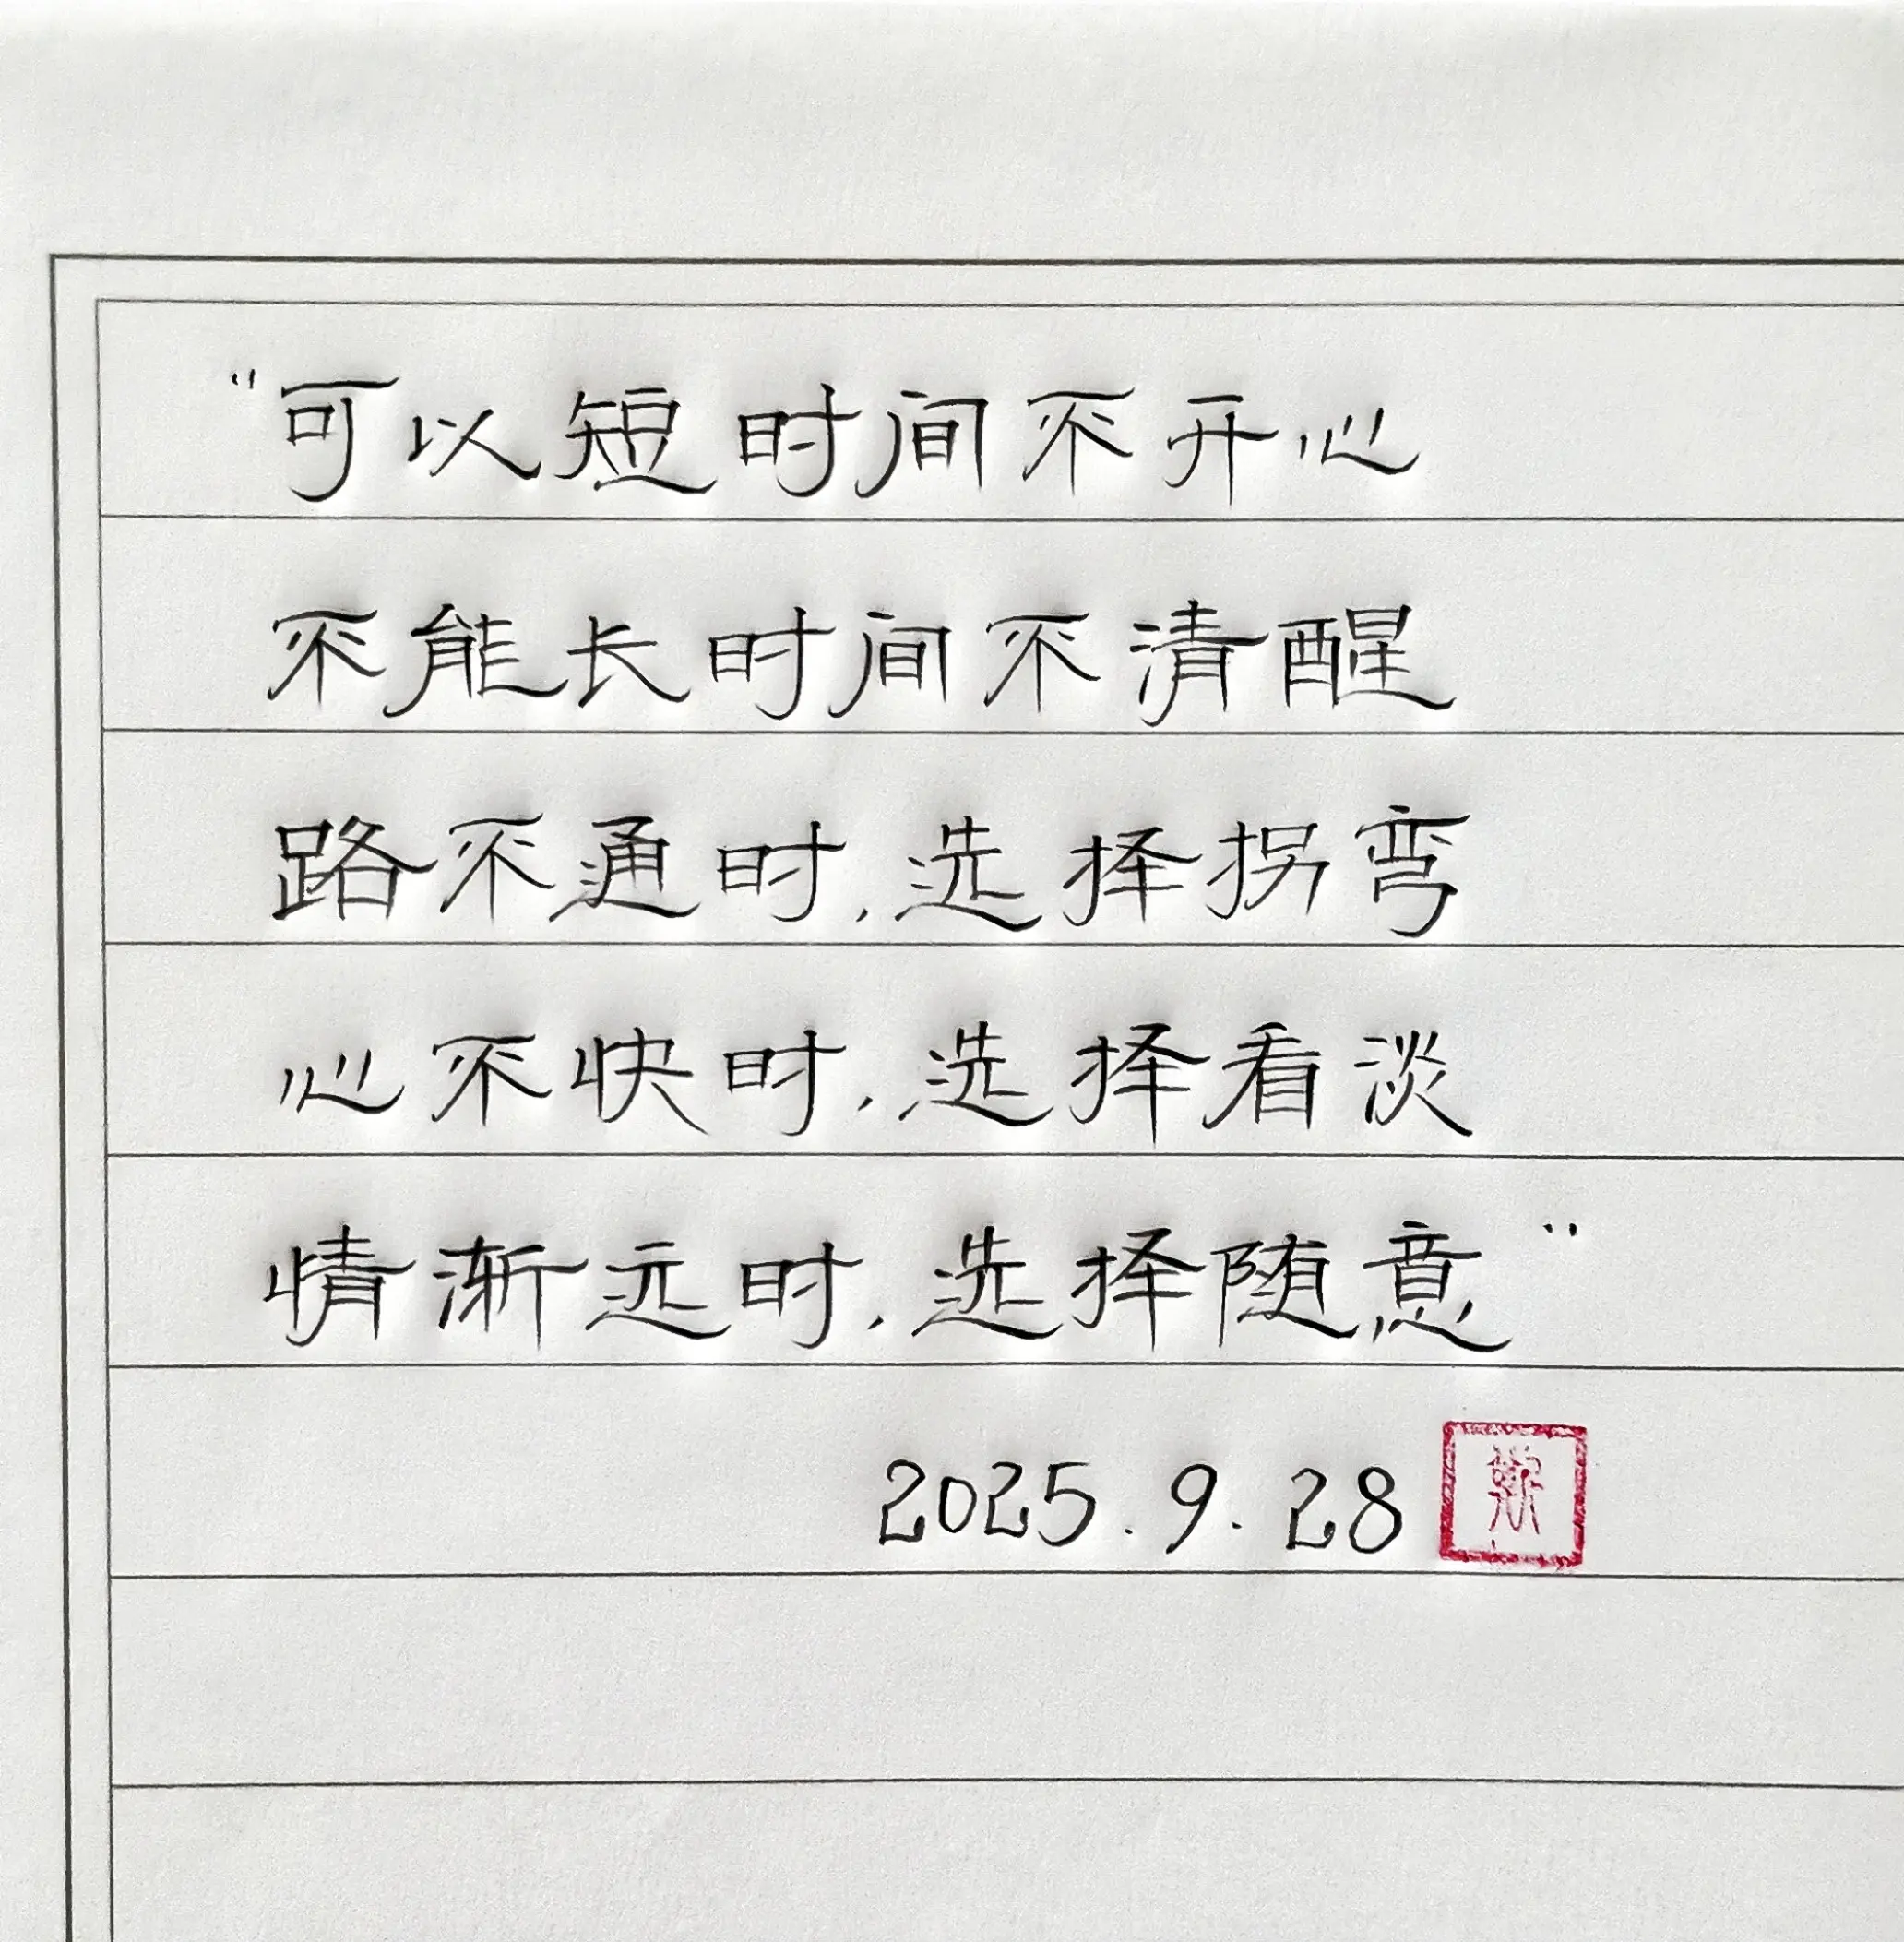 “可以短时间不开心
不能长时间不清醒
路不通时,选择拐弯
心不快时,选择看淡
情渐远时,选择随意”
2025.9.28